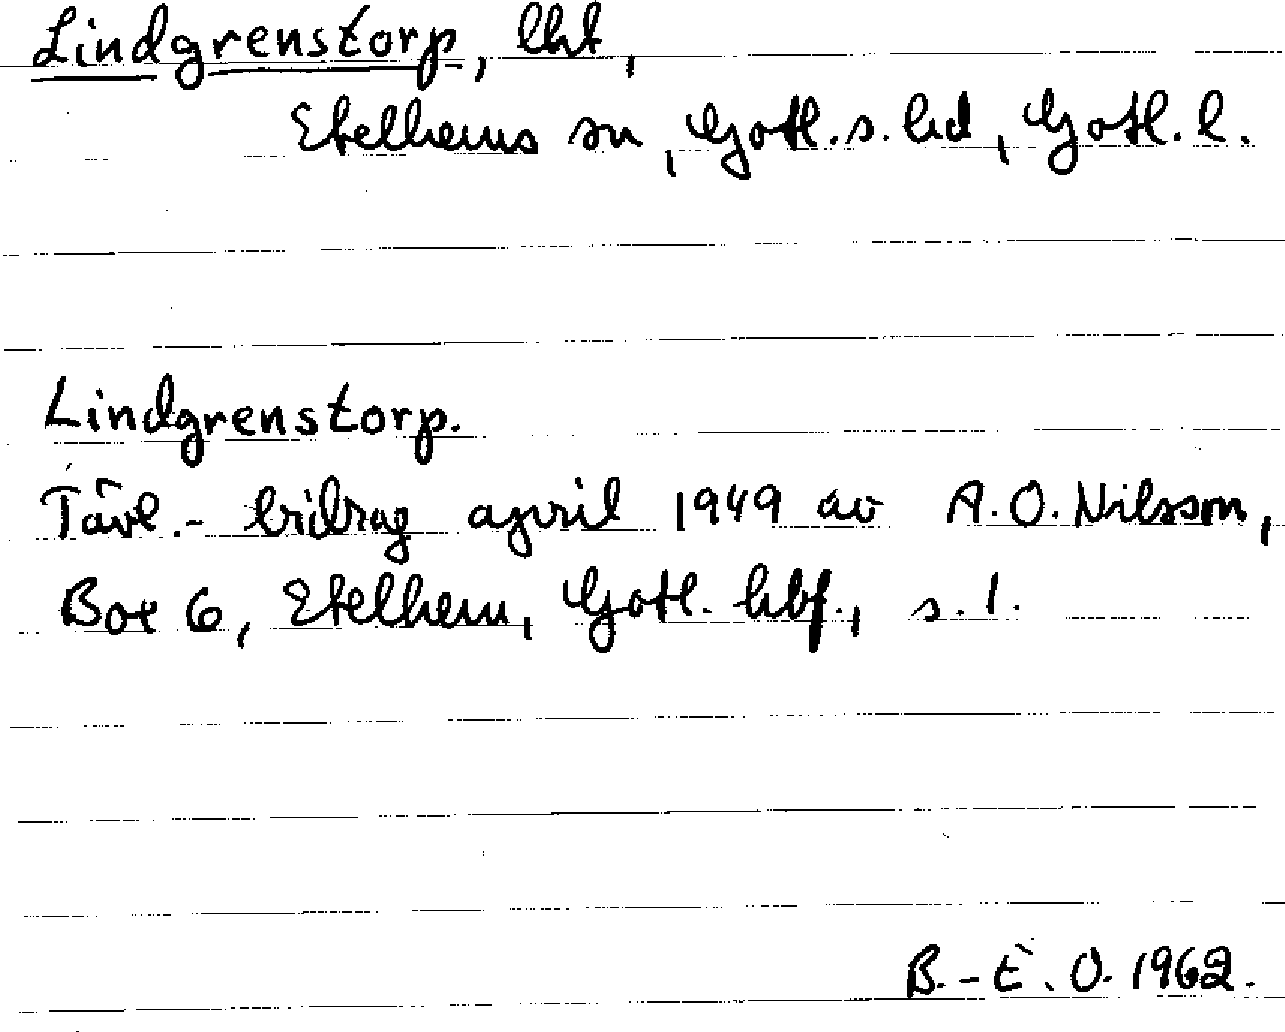 Lindgrenstorp, lht,
Etelhems sn, Gotl. s. hd, Gotl. l.
Lindgrenstorp.
Tävl.- bidrag april 1949 av A.O. Nilsson,
Box 6, Etelhem, Gotl. hbf., s. 1.
B.-E. O. 1962.